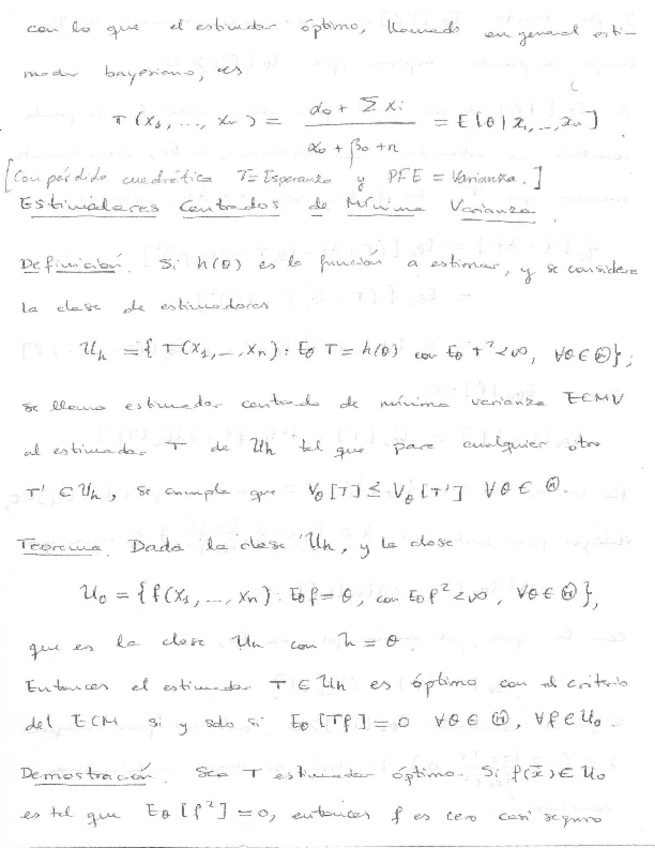 con lo que el estimador óptimo, llamado en general esti-
mador bayesiano, es
T(X₁, ..., Xₙ) = (α₀ + Σ Xᵢ) / (α₀ + β₀ + n) = E[θ | x₁, ..., xₙ].
[Con pérdida cuadrática T = Esperanza y PFE = Varianza.]
Estimadores Centrados de Mínima Varianza.
Definición. Si h(θ) es la función a estimar, y se considera
la clase de estimadores
𝒰ₕ = { T(X₁, ..., Xₙ) : E_θ T = h(θ) con E_θ T² < ∞, ∀θ ∈ Θ };
se llama estimador centrado de mínima varianza ECMV
al estimador T de 𝒰ₕ tal que para cualquier otro
T' ∈ 𝒰ₕ, se cumpla que V_θ[T] ≤ V_θ[T'] ∀θ ∈ Θ.
Teorema. Dada la clase 𝒰ₕ, y la clase
𝒰₀ = { f(X₁, ..., Xₙ) : E_θ f = θ, con E_θ f² < ∞, ∀θ ∈ Θ },
que es la clase 𝒰ₕ con h = θ.
Entonces el estimador T ∈ 𝒰ₕ es óptimo con el criterio
del ECM si y solo si E_θ[Tf] = 0 ∀θ ∈ Θ, ∀f ∈ 𝒰₀.
Demostración. Sea T estimador óptimo. Si f(x̄) ∈ 𝒰₀
es tal que E_θ[f²] = 0, entonces f es cero casi seguro